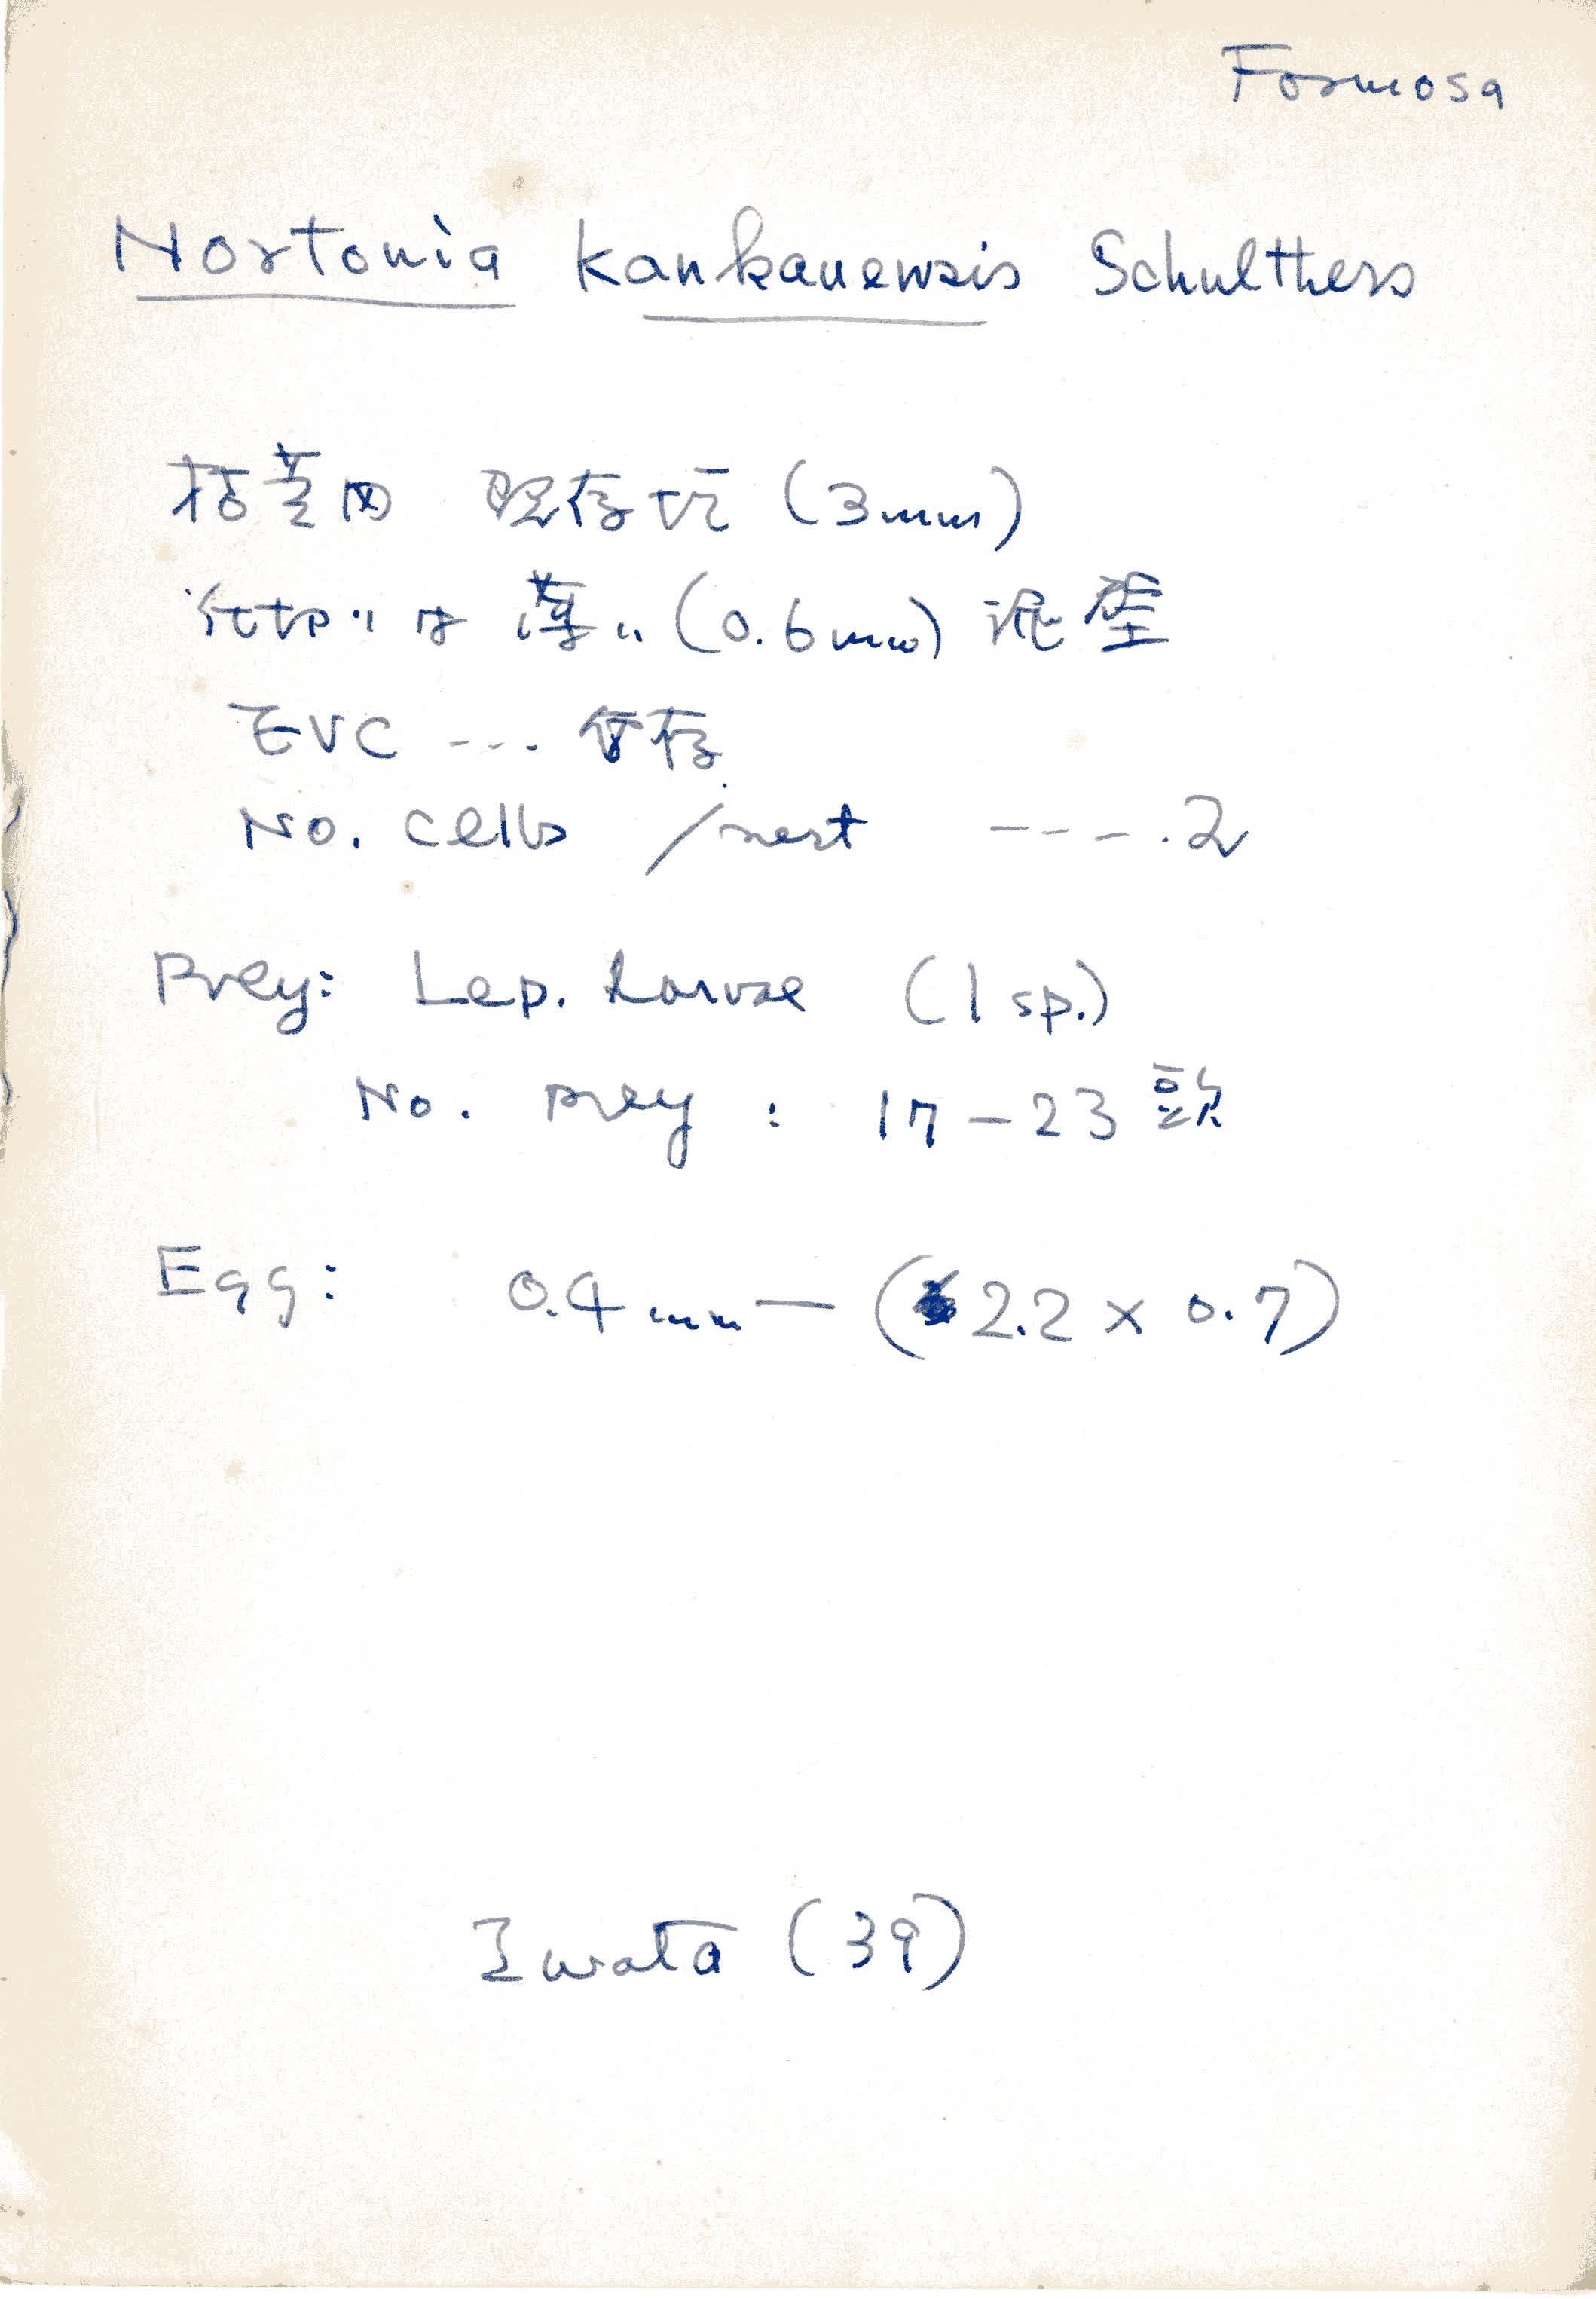 Formosa
Nortonia kankauensis Schulthess
枯茎内 既存坑 (3mm)
仕切りは薄い (0.6mm) 泥壁
EVC --- 存
No. cells /nest ---- 2
Prey: Lep. larvae (1 sp.)
No. prey : 17 - 23 頭
Egg: 0.4 mm — (2.2 x 0.7)
Iwata (39)